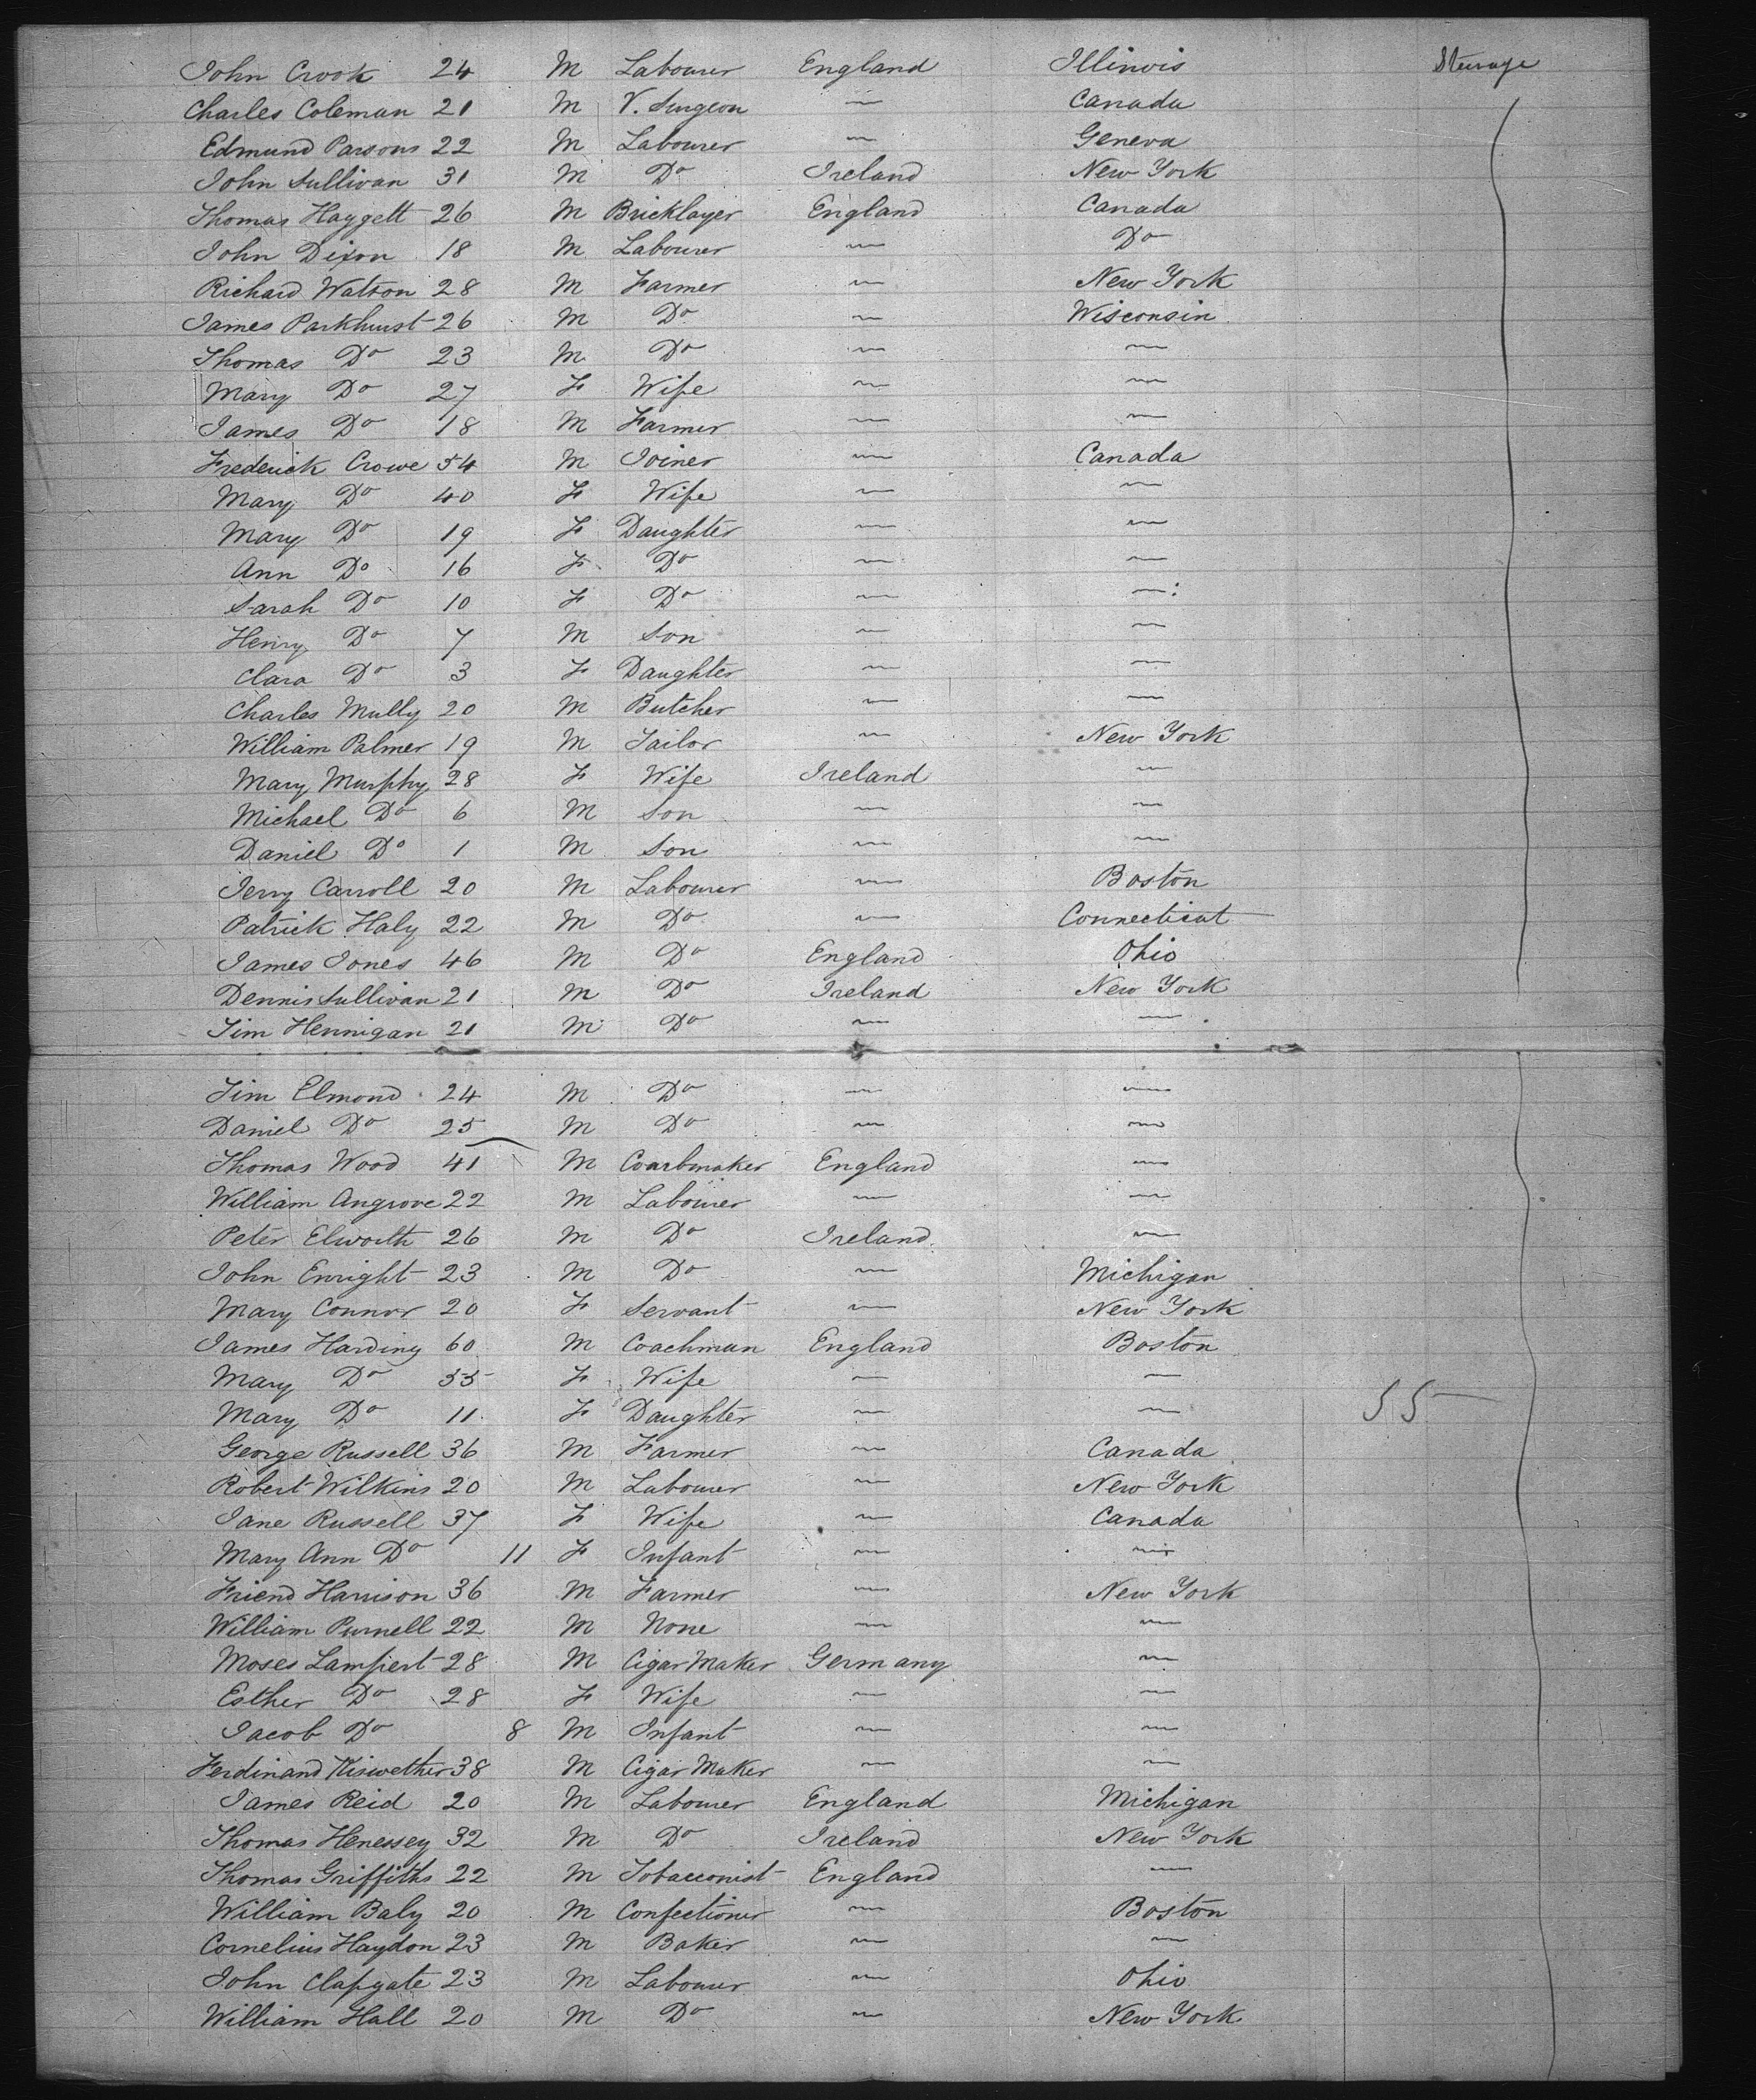 John Crook 24 M Labourer England Illinois Steerage
Charles Coleman 21 M V. Surgeon — Canada
Edmund Parsons 22 M Labourer — Geneva
John Sullivan 31 M Do Ireland New York
Thomas Haggett 26 M Bricklayer England Canada
John Dixon 18 M Labourer — Do
Richard Watson 28 M Farmer — New York
James Parkhurst 26 M Do — Wisconsin
Thomas Do 23 M Do — —
Mary Do 27 F Wife — —
James Do 18 M Farmer — —
Frederick Crowe 54 M Joiner — Canada
Mary Do 40 F Wife — —
Mary Do 19 F Daughter — —
Ann Do 16 F Do — —
Sarah Do 10 F Do — —
Henry Do 7 M Son — —
Clara Do 3 F Daughter — —
Charles Mully 20 M Butcher — —
William Palmer 19 M Tailor — New York
Mary Murphy 28 F Wife Ireland —
Michael Do 6 M Son — —
Daniel Do 1 M Son — —
Jerry Carroll 20 M Labourer — Boston
Patrick Haly 22 M Do — Connecticut
James Jones 46 M Do England Ohio
Dennis Sullivan 21 M Do Ireland New York
Tim Hennigan 21 M Do — —
Tim Elmond 24 M Do — —
Daniel Do 25 M Do — —
Thomas Wood 41 M England —
William Angrove 22 M Labourer — —
Peter Elworth 26 M Do Ireland —
John Enright 23 M Do — Michigan
Mary Connor 20 F Servant — New York
James Harding 60 M Coachman England Boston
Mary Do 55 F Wife — —
Mary Do 11 F Daughter — — 55
George Russell 36 M Farmer — Canada
Robert Wilkins 20 M Labourer — New York
Jane Russell 37 F Wife — Canada
Mary Ann Do 11 F Infant — —
Friend Harrison 36 M Farmer — New York
William Purnell 22 M None — —
Moses Lampert 28 M Cigar Maker Germany —
Esther Do 28 F Wife — —
Jacob Do 8 M Infant — —
Ferdinand 38 M Cigar Maker — —
James Reid 20 M Labourer England Michigan
Thomas Henessey 32 M Do Ireland New York
Thomas Griffiths 22 M Tobacconist England —
William Baly 20 M Confectioner — Boston
Cornelius Haydon 23 M Baker — —
John Clapgate 23 M Labourer — Ohio
William Hall 20 M Do — New York